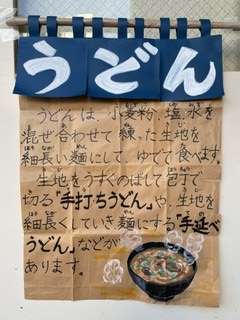 うどん
うどんは、小麦粉、塩、水を
混ぜ合わせて練った生地を
細長い麺にして、ゆでて食べます。
生地をうすくのばして包丁で
切る「手打ちうどん」や、生地を
細長くしていき麺にする「手延べ
うどん」などが
あります。